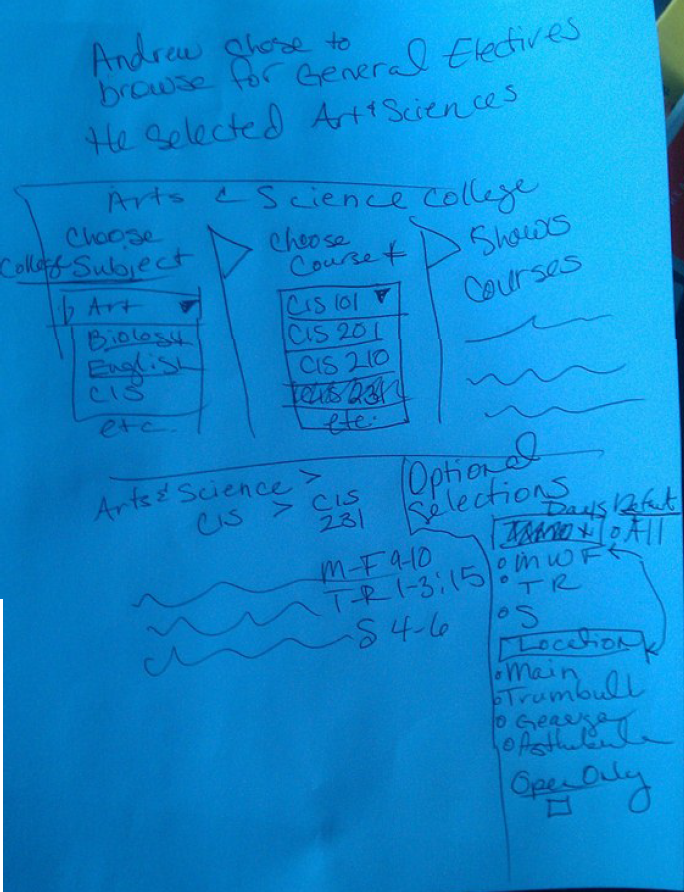 Andrew chose to
browse for General Electives
He Selected Art & Sciences
Arts & Science College
Choose
College Subject
Art
Biology
English
CIS
etc.
Choose
Course #
CIS 101
CIS 201
CIS 210
CIS 231
etc.
Shows
Courses
Arts & Science >
CIS > CIS
231
M-F 9-10
T-R 1-3:15
S 4-6
Optional
Selections
Days Default
All
MWF
TR
S
Location
Main
Trumbull
Geauga
Open Only